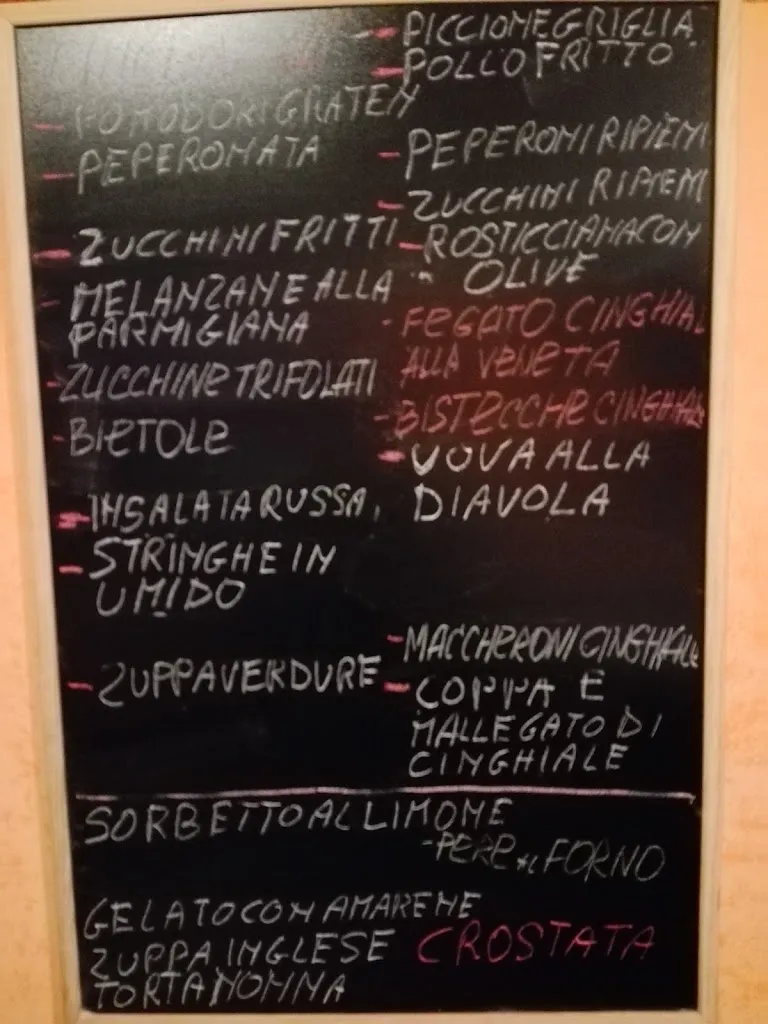 POMODORI GRATEN
- PEPERONATA
- ZUCCHINI FRITTI
- MELANZANE ALLA
PARMIGIANA
- ZUCCHINE TRIFOLATI
- BIETOLE
- INSALATA RUSSA,
- STRINGHE IN
UMIDO
- ZUPPA VERDURE
- PICCIONE GRIGLIA
- POLLO FRITTO
- PEPERONI RIPIENI
- ZUCCHINI RIPIENI
- ROSTICCIANA CON
OLIVE
- FEGATO CINGHIAL
ALLA VENETA
- BISTECCHE CINGHIALE
- UOVA ALLA
DIAVOLA
- MACCHERONI CINGHIALE
- COPPA E
MALLEGATO DI
CINGHIALE
SORBETTO AL LIMONE
- PERE AL FORNO
GELATO CON AMARENE
ZUPPA INGLESE CROSTATA
TORTA NONNA